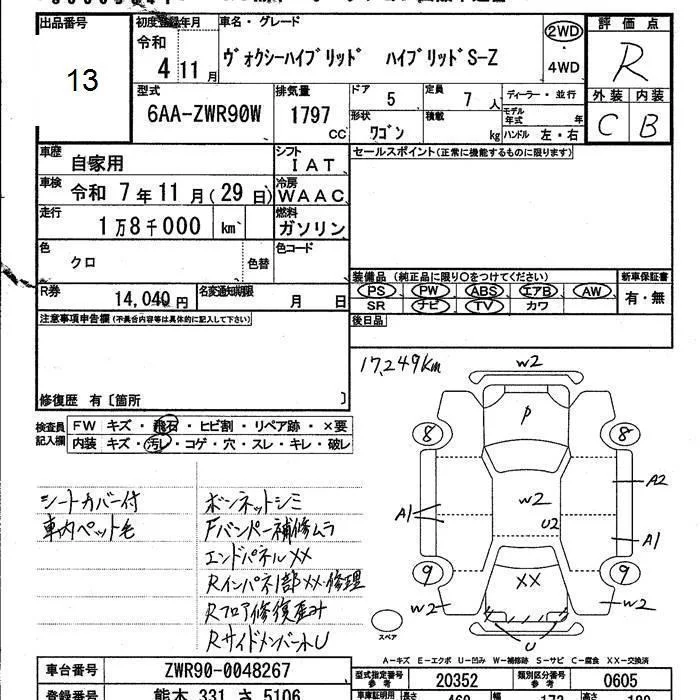 出品番号
13
初度登録年月
令和
4 11月
車名・グレード
ヴォクシーハイブリッド ハイブリッドS-Z
2WD
・
4WD
評価点
R
外装 内装
C B
型式
6AA-ZWR90W
排気量
1797
CC
ドア
5
定員
7 人
形状
ワゴン
積載
kg
ディーラー・並行
モデル年式 年
ハンドル 左・右
車歴
自家用
シフト
IAT
セールスポイント(正常に機能するものに限ります)
車検
令和 7年11月(29日)
冷房
WAAC
走行
1万8千000 km
燃料
ガソリン
色
クロ
色替
色コード
R券
14,040円
名変通知期限
月 日
装備品 (純正品に限り○をつけてください)
PS PW ABS エアB AW
SR ナビ TV カワ
新車保証書
有・無
後日品
注意事項申告欄(不具合内容等は具体的に記入して下さい)
修復歴 有〔箇所 〕
17,249km
検査員記入欄
FW キズ・飛石・ヒビ割・リペア跡・×要
内装 キズ・汚レ・コゲ・穴・スレ・キレ・破レ
シートカバー付
車内ペット毛
ボンネットシミ
Fバンパー補修ムラ
エンドパネルXX
Rインパネ1部XX・修理
Rフロア修復歪み
RサイドメンバーホU
W2
P
8
8
A1
W2
U2
A2
A1
9
9
XX
W2
W2
U
スペア
A-キズ E-エクボ U-凹み W-補修跡 S-サビ C-腐食 XX-交換済
車台番号
ZWR90-0048267
登録番号
熊本 331 さ 5106
型式指定番号
参考
20352
類別区分番号
参考
0605